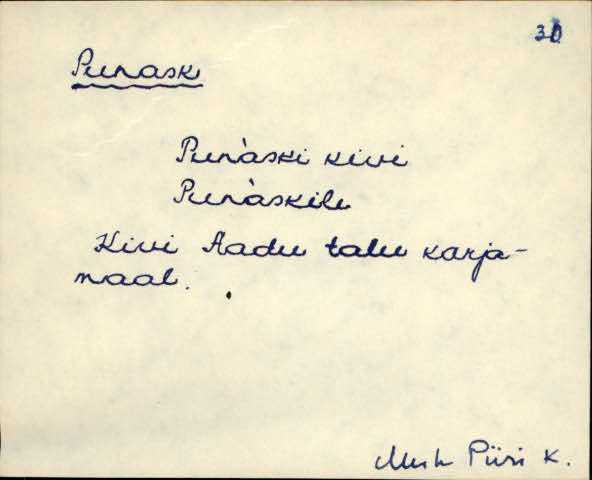 30
Punask
Punàski kivi
Punàskile
Kivi Aadu talu karja-
maal.
Mush Piiri K.